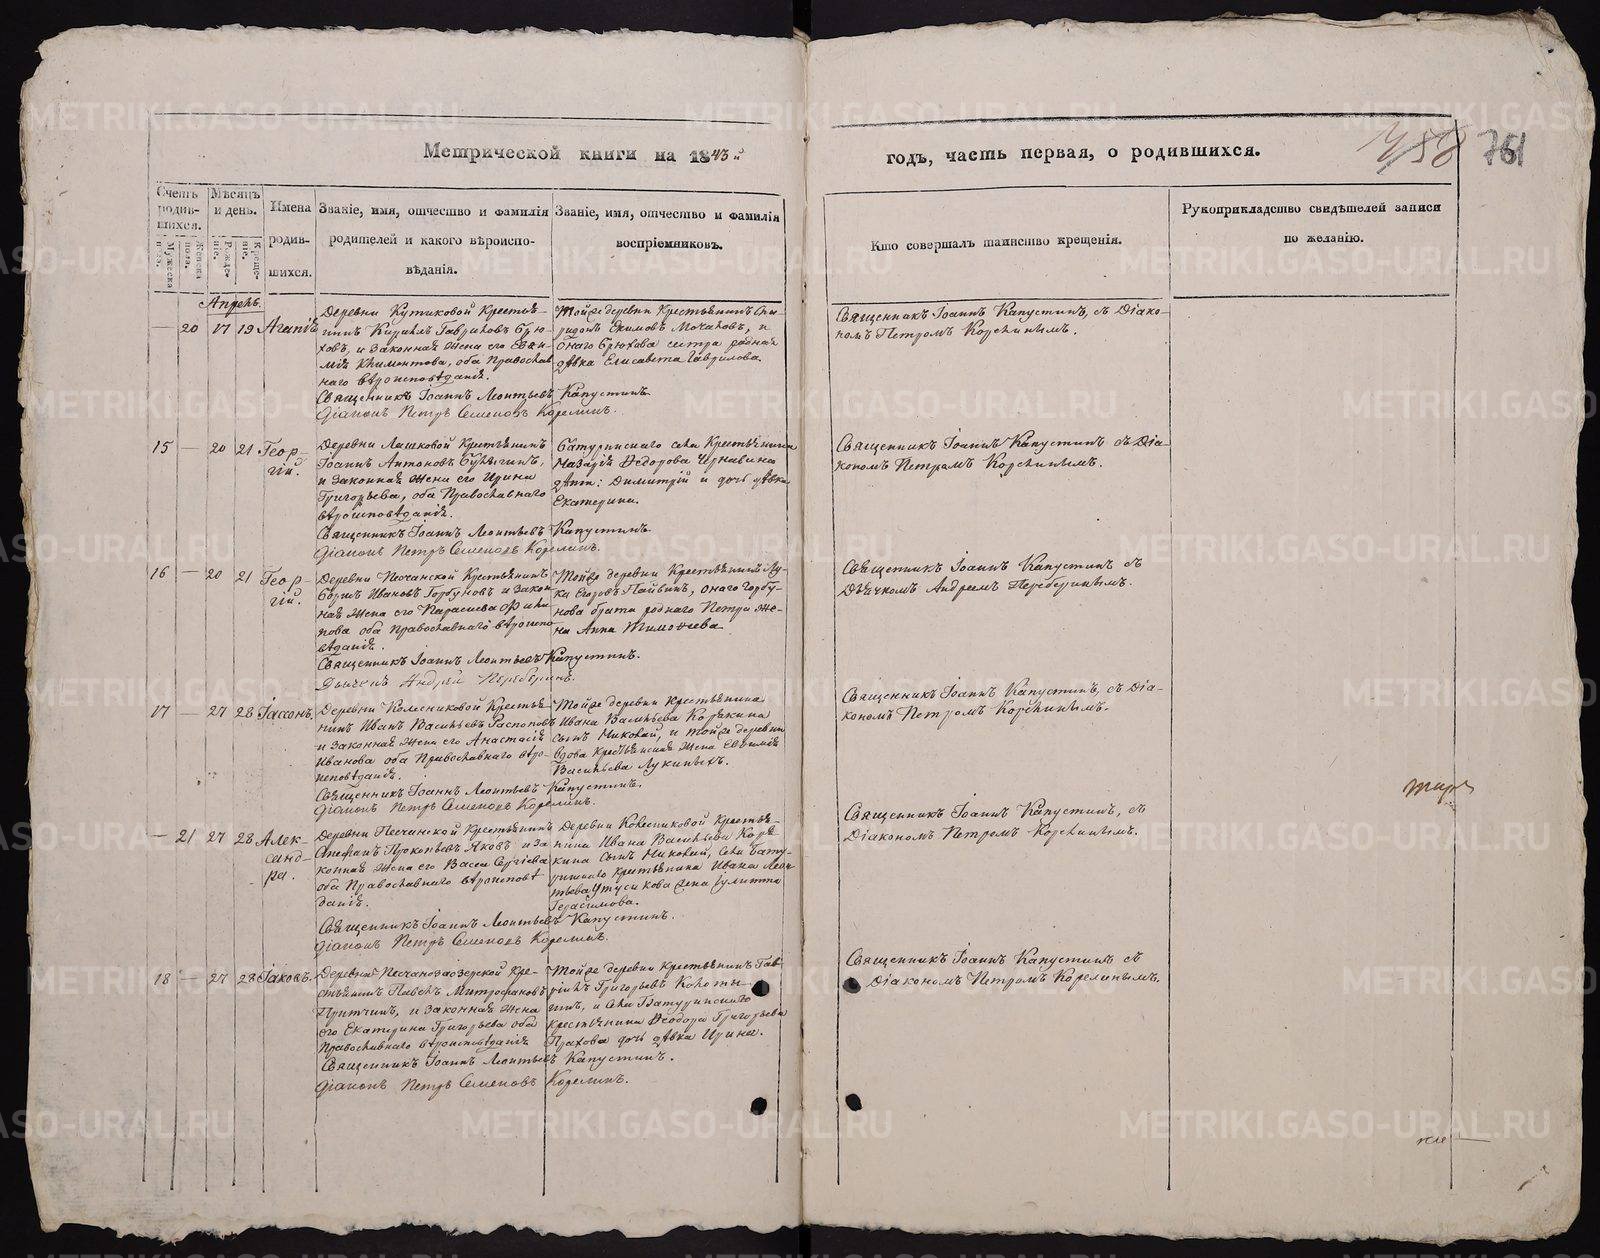 Метрической книги на 1843й
годъ, часть первая, о родившихся.
758
761
Счетъ родив-
шихся.
Мужеска пола.
Женска пола.
Мѣсяцъ и день.
Рожде-
ніе.
Креще-
ніе.
Имена
родив-
шихся.
Званіе, имя, отчество и фамилія
родителей и какого вѣроиспо-
вѣданія.
Званіе, имя, отчество и фамилія
воспріемниковъ.
Кто совершалъ таинство крещенія.
Рукоприкладство свидѣтелей записи
по желанію.
Апрѣль.
— 20 17 19
Деревни Кутиковой Крестья-
нинъ Кирилъ Гавриловъ Брю-
ховъ, и законная жена его
оба Православ
наго вѣроисповѣданія.
Священникъ Іоаннъ Леонтьевъ Капустинъ.
Діаконъ Петръ Семеновъ Корелинъ.
Тойже деревни Крестьянинъ Спи-
ридонъ Екимовъ Мочаловъ, и
онаго Брюхова сестра родная
дѣвка Елисавета Гаврилова.
Священникъ Іоаннъ Капустинъ, съ Діако-
номъ Петромъ Корелинымъ.
15 — 20 21 Геор-
гій.
Деревни Лашковой Крестьянинъ
Іоаннъ Антоновъ
и законная жена его Ирина
Григорьева, оба Православнаго
вѣроисповѣданія.
Священникъ Іоаннъ Леонтьевъ Капустинъ.
Діаконъ Петръ Семеновъ Корелинъ.
Батуринскаго села Крестьянина
Назарія Ѳедорова Чернавина
дѣти: Димитрій и дочь дѣвка
Екатерина.
Священникъ Іоаннъ Капустинъ съ Діа-
кономъ Петромъ Корелинымъ.
16 — 20 21 Геор-
гій.
Деревни Песчанской Крестьянинъ
Борисъ Ивановъ Горбуновъ и закон
ная жена его Параскева Фили-
пова оба Православнаго вѣроиспо
вѣданія.
Священникъ Іоаннъ Леонтьевъ Капустинъ.
Дьячекъ Андрей Переберинъ.
Тойже деревни Крестьянинъ Лу-
ка Егоровъ Пайвинъ, онаго Горбу-
нова брата роднаго Петра же-
на Анна Тимоѳеева.
Священникъ Іоаннъ Капустинъ съ
Дьячкомъ Андреемъ Переберинымъ.
17 — 27 28 Іассонъ.
Деревни Колесниковой Крестья-
нинъ Иванъ Васильевъ Распоповъ
и законная жена его Анастасія
Иванова оба Православнаго вѣро-
исповѣданія.
Священникъ Іоаннъ Леонтьевъ Капустинъ.
Діаконъ Петръ Семеновъ Корелинъ.
Тойже деревни Крестьянина
Ивана Васильева Корякина
сынъ Николай, и тойже деревни
вдова Крестьянская жена Евѳимія
Васильева Лукиныхъ.
Священникъ Іоаннъ Капустинъ, съ Діа-
кономъ Петромъ Корелинымъ.
— 21 27 28 Алек-
санд-
ра.
Деревни Песчанской Крестьянинъ
Стефанъ Прокопьевъ Яковъ и за
конная жена его Васса Сергіева
оба Православнаго вѣроисповѣ
данія.
Священникъ Іоаннъ Леонтьевъ Капустинъ.
Діаконъ Петръ Семеновъ Корелинъ.
Деревни Колесниковой Крестья-
нина Ивана Васильева Коря-
кина сынъ Николай, села Бату-
ринскаго Крестьянина Ивана Леон
тьева жена Іулитта
Герасимова.
Священникъ Іоаннъ Капустинъ, съ
Діакономъ Петромъ Корелинымъ.
18 — 27 28 Іаковъ.
Деревни Песчанозаозерской Кре-
стьянинъ Павелъ Митрофановъ
Притчинъ, и законная жена
его Екатерина Григорьева оба
Православнаго вѣроисповѣданія
Священникъ Іоаннъ Леонтьевъ Капустинъ.
Діаконъ Петръ Семеновъ Корелинъ.
Тойже деревни Крестьянинъ Гав-
ріилъ Григорьевъ Колоты-
гинъ, и села Батуринскаго
крестьянина Ѳеодора Григорьева
Прахова дочь дѣвка Ирина.
Священникъ Іоаннъ Капустинъ съ
Діакономъ Петромъ Корелинымъ.
METRIKI.GASO-URAL.RU